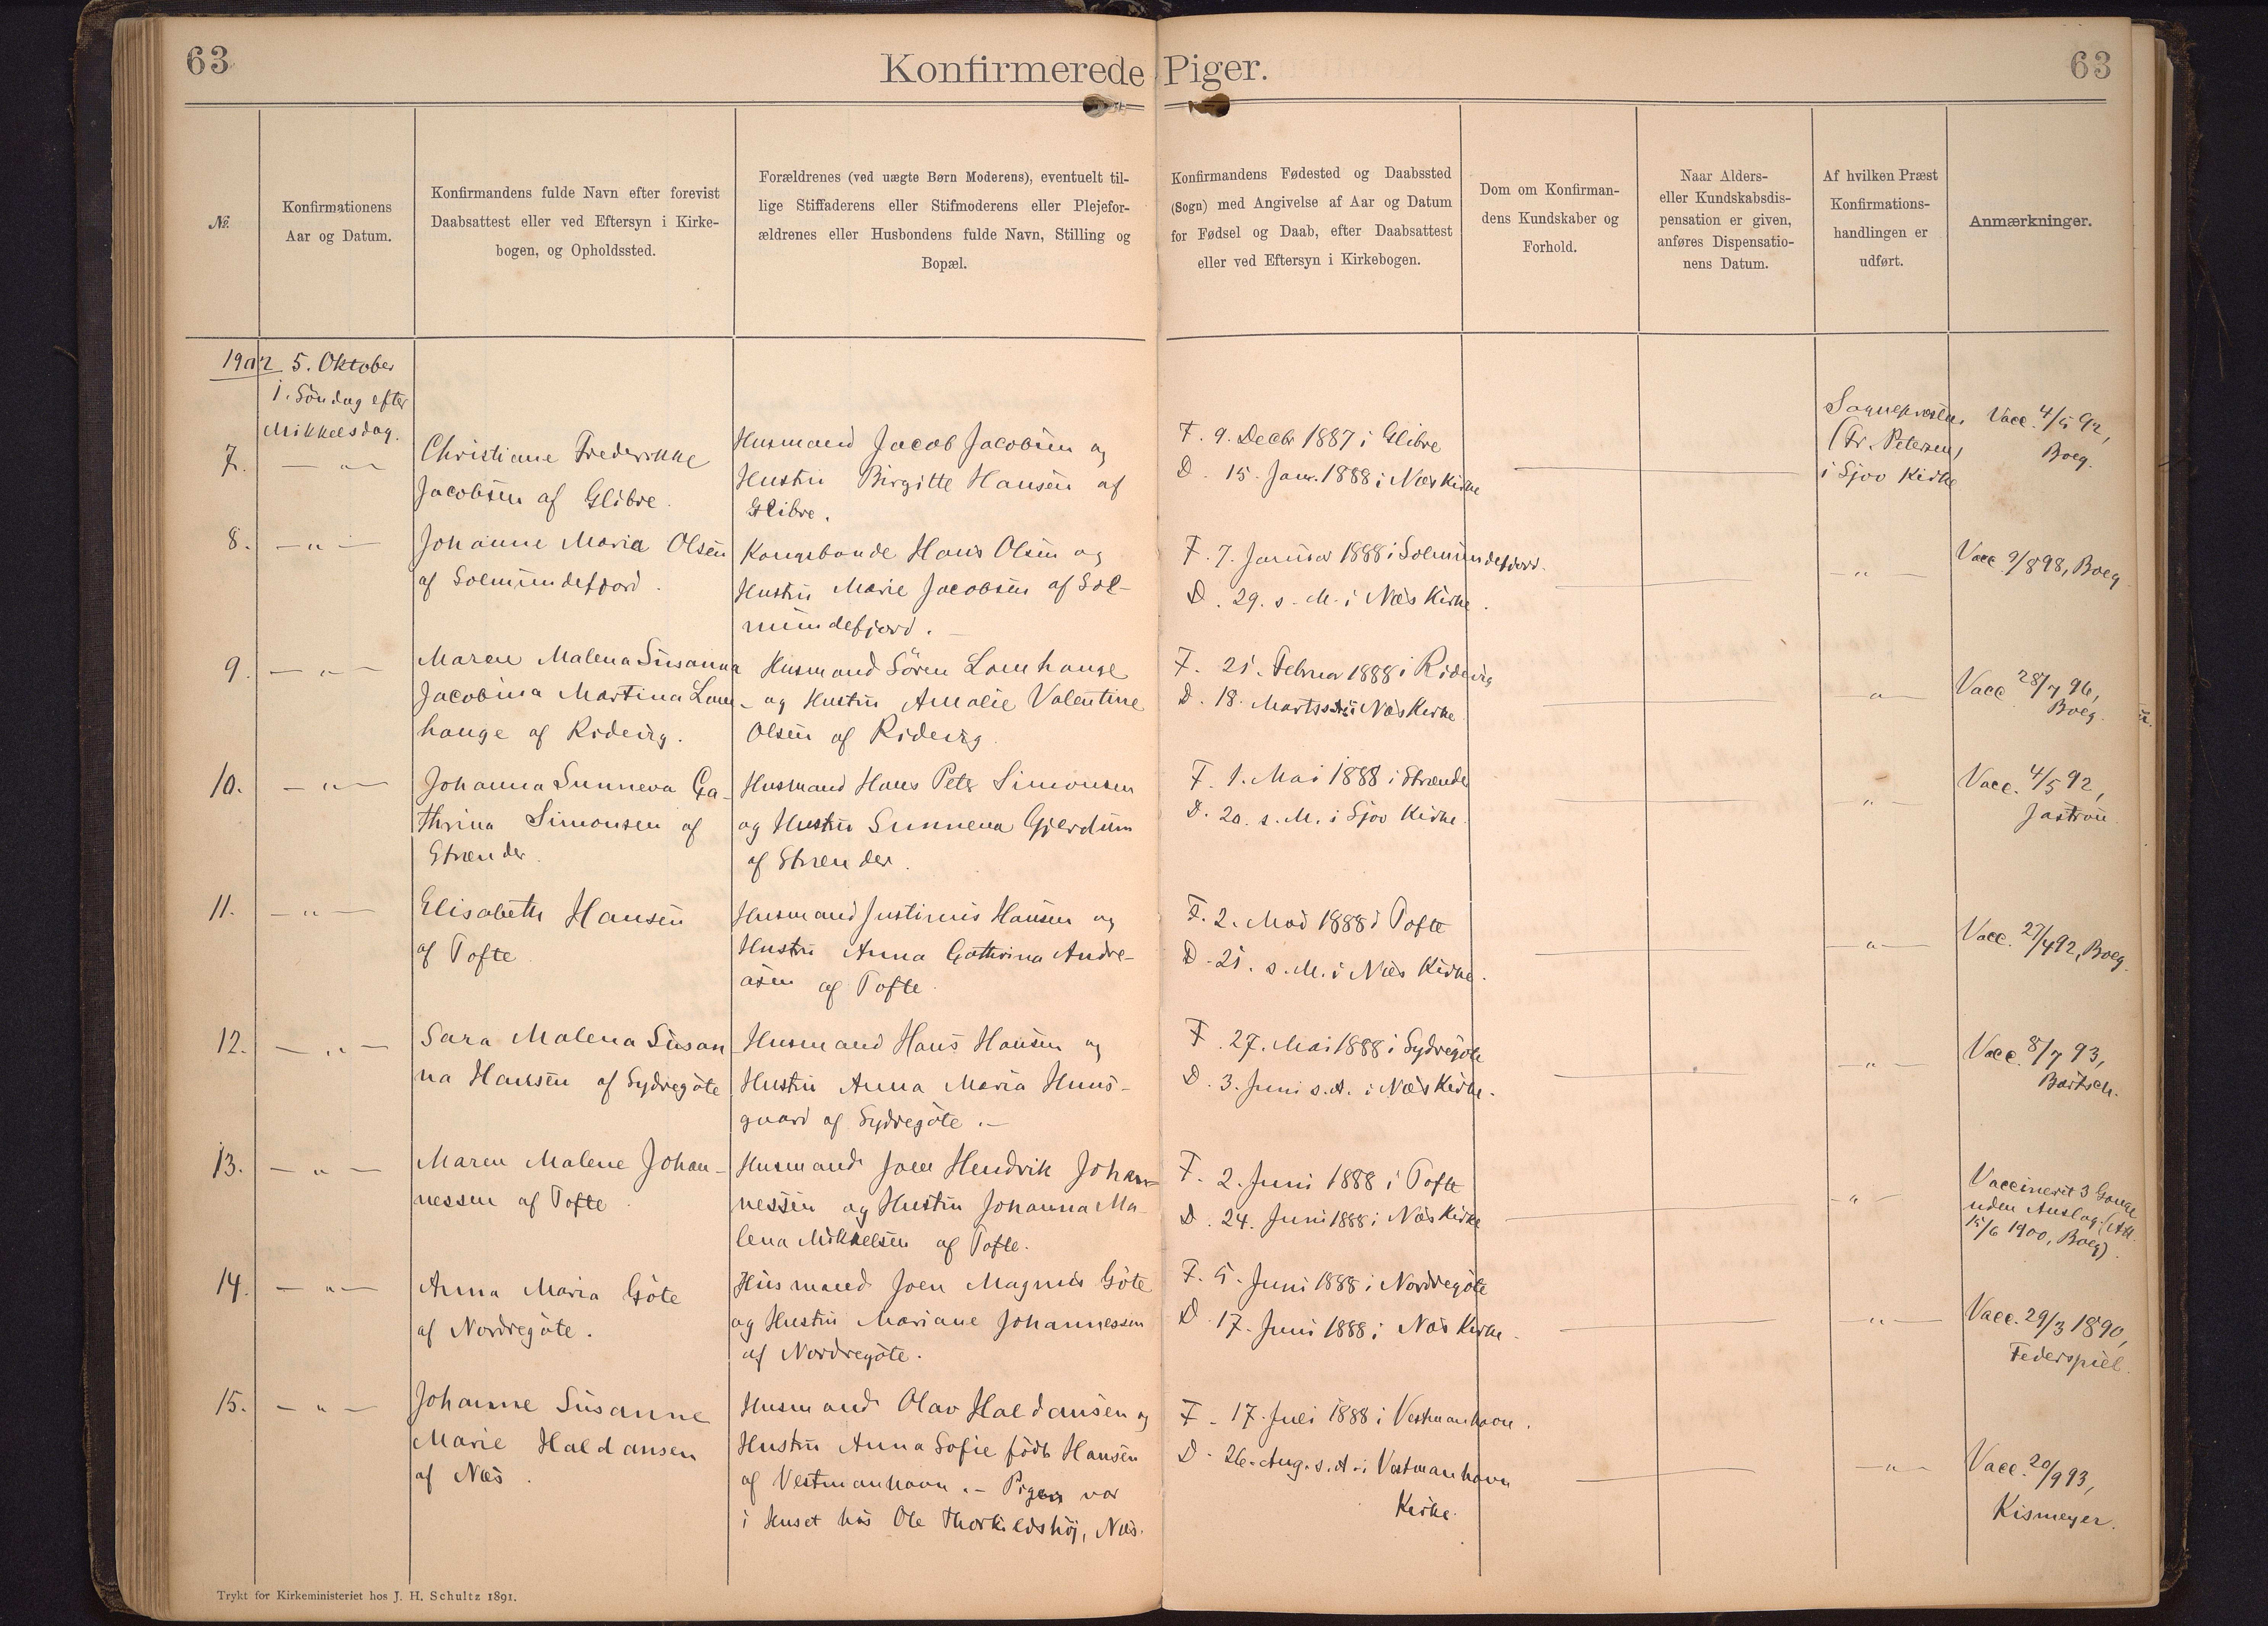 63
Konfirmerede Piger.
63
№.
Konfirmationens
Aar og Datum.
Konfirmandens fulde Navn efter forevist
Daabsattest eller ved Eftersyn i Kirke-
bogen, og Opholdssted.
Forældrenes (ved uægte Børn Moderens), eventuelt til-
lige Stiffaderens eller Stifmoderens eller Plejefor-
ældrenes eller Husbondens fulde Navn, Stilling og
Bopæl.
Konfirmandens Fødested og Daabssted
(Sogn) med Angivelse af Aar og Datum
for Fødsel og Daab, efter Daabsattest
eller ved Eftersyn i Kirkebogen.
Dom om Konfirman-
dens Kundskaber og
Forhold.
Naar Alders-
eller Kundskabsdis-
pensation er given,
anføres Dispensatio-
nens Datum.
Af hvilken Præst
Konfirmations-
handlingen er
udført.
Anmærkninger.
1902 5. Oktober
1. Söndag efter
Mikkelsdag.
7.
— " —
Christiane Frederikke
Jacobsen af Glibre.
Husmand Jacob Jacobsen og
Hustru Birgitte Hansen af
Glibre.
F. 9. Decbr 1887 i Glibre
D. 15. Jan. 1888 i Næs Kirke
Sognepræsten
(Fr. Petersen)
i Sjov Kirke
Vacc. 4/5 92,
Boeg.
8.
— " —
Johanne Maria Olsen
af Solmundefjord.
Kongsbonde Hans Olsen og
Hustru Marie Jacobsen af Sol-
mundefjord. —
F. 7. Januar 1888 i Solmundefjord.
D. 29. s. M. i Næs Kirke.
— " —
Vacc 9/8 98, Boeg
9.
— " —
Maren Malena Susanna
Jacobina Martina Lam-
hauge af Ridevig.
Husmand Sören Lamhauge
og Hustru Amalie Valentine
Olsen af Ridevig.
F. 21. Februar 1888 i Ridevig
D. 18. Marts i Næs Kirke.
— " —
Vacc 28/7 96,
Boeg.
10.
— " —
Johanna Sunneva Ca-
thrina Simonsen af
Strænder.
Husmand Hans Peter Simonsen
og Hustru Sunneva Gjerdum
af Strænder.
F. 1. Mai 1888 i Strænder
D. 20. s. M. i Sjov Kirke.
— " —
Vacc. 4/5 92,
Jastrau.
11.
— " —
Elisabeth Hansen
af Tofte.
Husmand Justinus Hansen og
Hustru Anna Cathrina Andre-
asen af Tofte.
F. 2. Mai 1888 i Tofte
D. 21. s. M. i Næs Kirke.
— " —
Vacc. 27/4 92, Boeg.
12.
— " —
Sara Malena Susan
na Hansen af Sydregöte
Husmand Hans Hansen og
Hustru Anna Maria Huus-
gaard af Sydregöte. —
F. 27. Mai 1888 i Sydregöte
D. 3. Juni s. A. i Næs Kirke.
— " —
Vacc. 8/7 93,
Bartsch.
13.
— " —
Maren Malene Johan-
nessen af Tofte.
Husmand Joen Hendrik Johan-
nessen og Hustru Johanna Ma-
lena Mikkelsen af Tofte.
F. 2. Juni 1888 i Tofte
D. 24. Juni 1888 i Næs Kirke
— " —
Vaccineret 3 Gange
uden Anslag (Att.
15/6 1900, Boeg).
14.
— " —
Anna Maria Göte
af Nordregöte.
Husmand Joen Magnus Göte
og Hustru Mariane Johannessen
af Nordregöte.
F. 5. Juni 1888 i Nordregöte
D. 17. Juni 1888 i Næs Kirke.
— " —
Vacc. 29/3 1890,
Federspiel.
15.
— " —
Johanne Susanne
Marie Haldansen
af Næs.
Husmand Olav Haldansen og
Hustru Anna Sofie födt Hansen
af Vestmanhavn. — Pigen var
i Huset hos Ole Thorkildshöj, Næs.
F. 17. Juli 1888 i Vestmanhavn.
D. 26. Aug. s. A. i Vestmanhavn
Kirke.
— " —
Vacc. 20/9 93,
Kismeyer.
Trykt for Kirkeministeriet hos J. H. Schultz 1891.